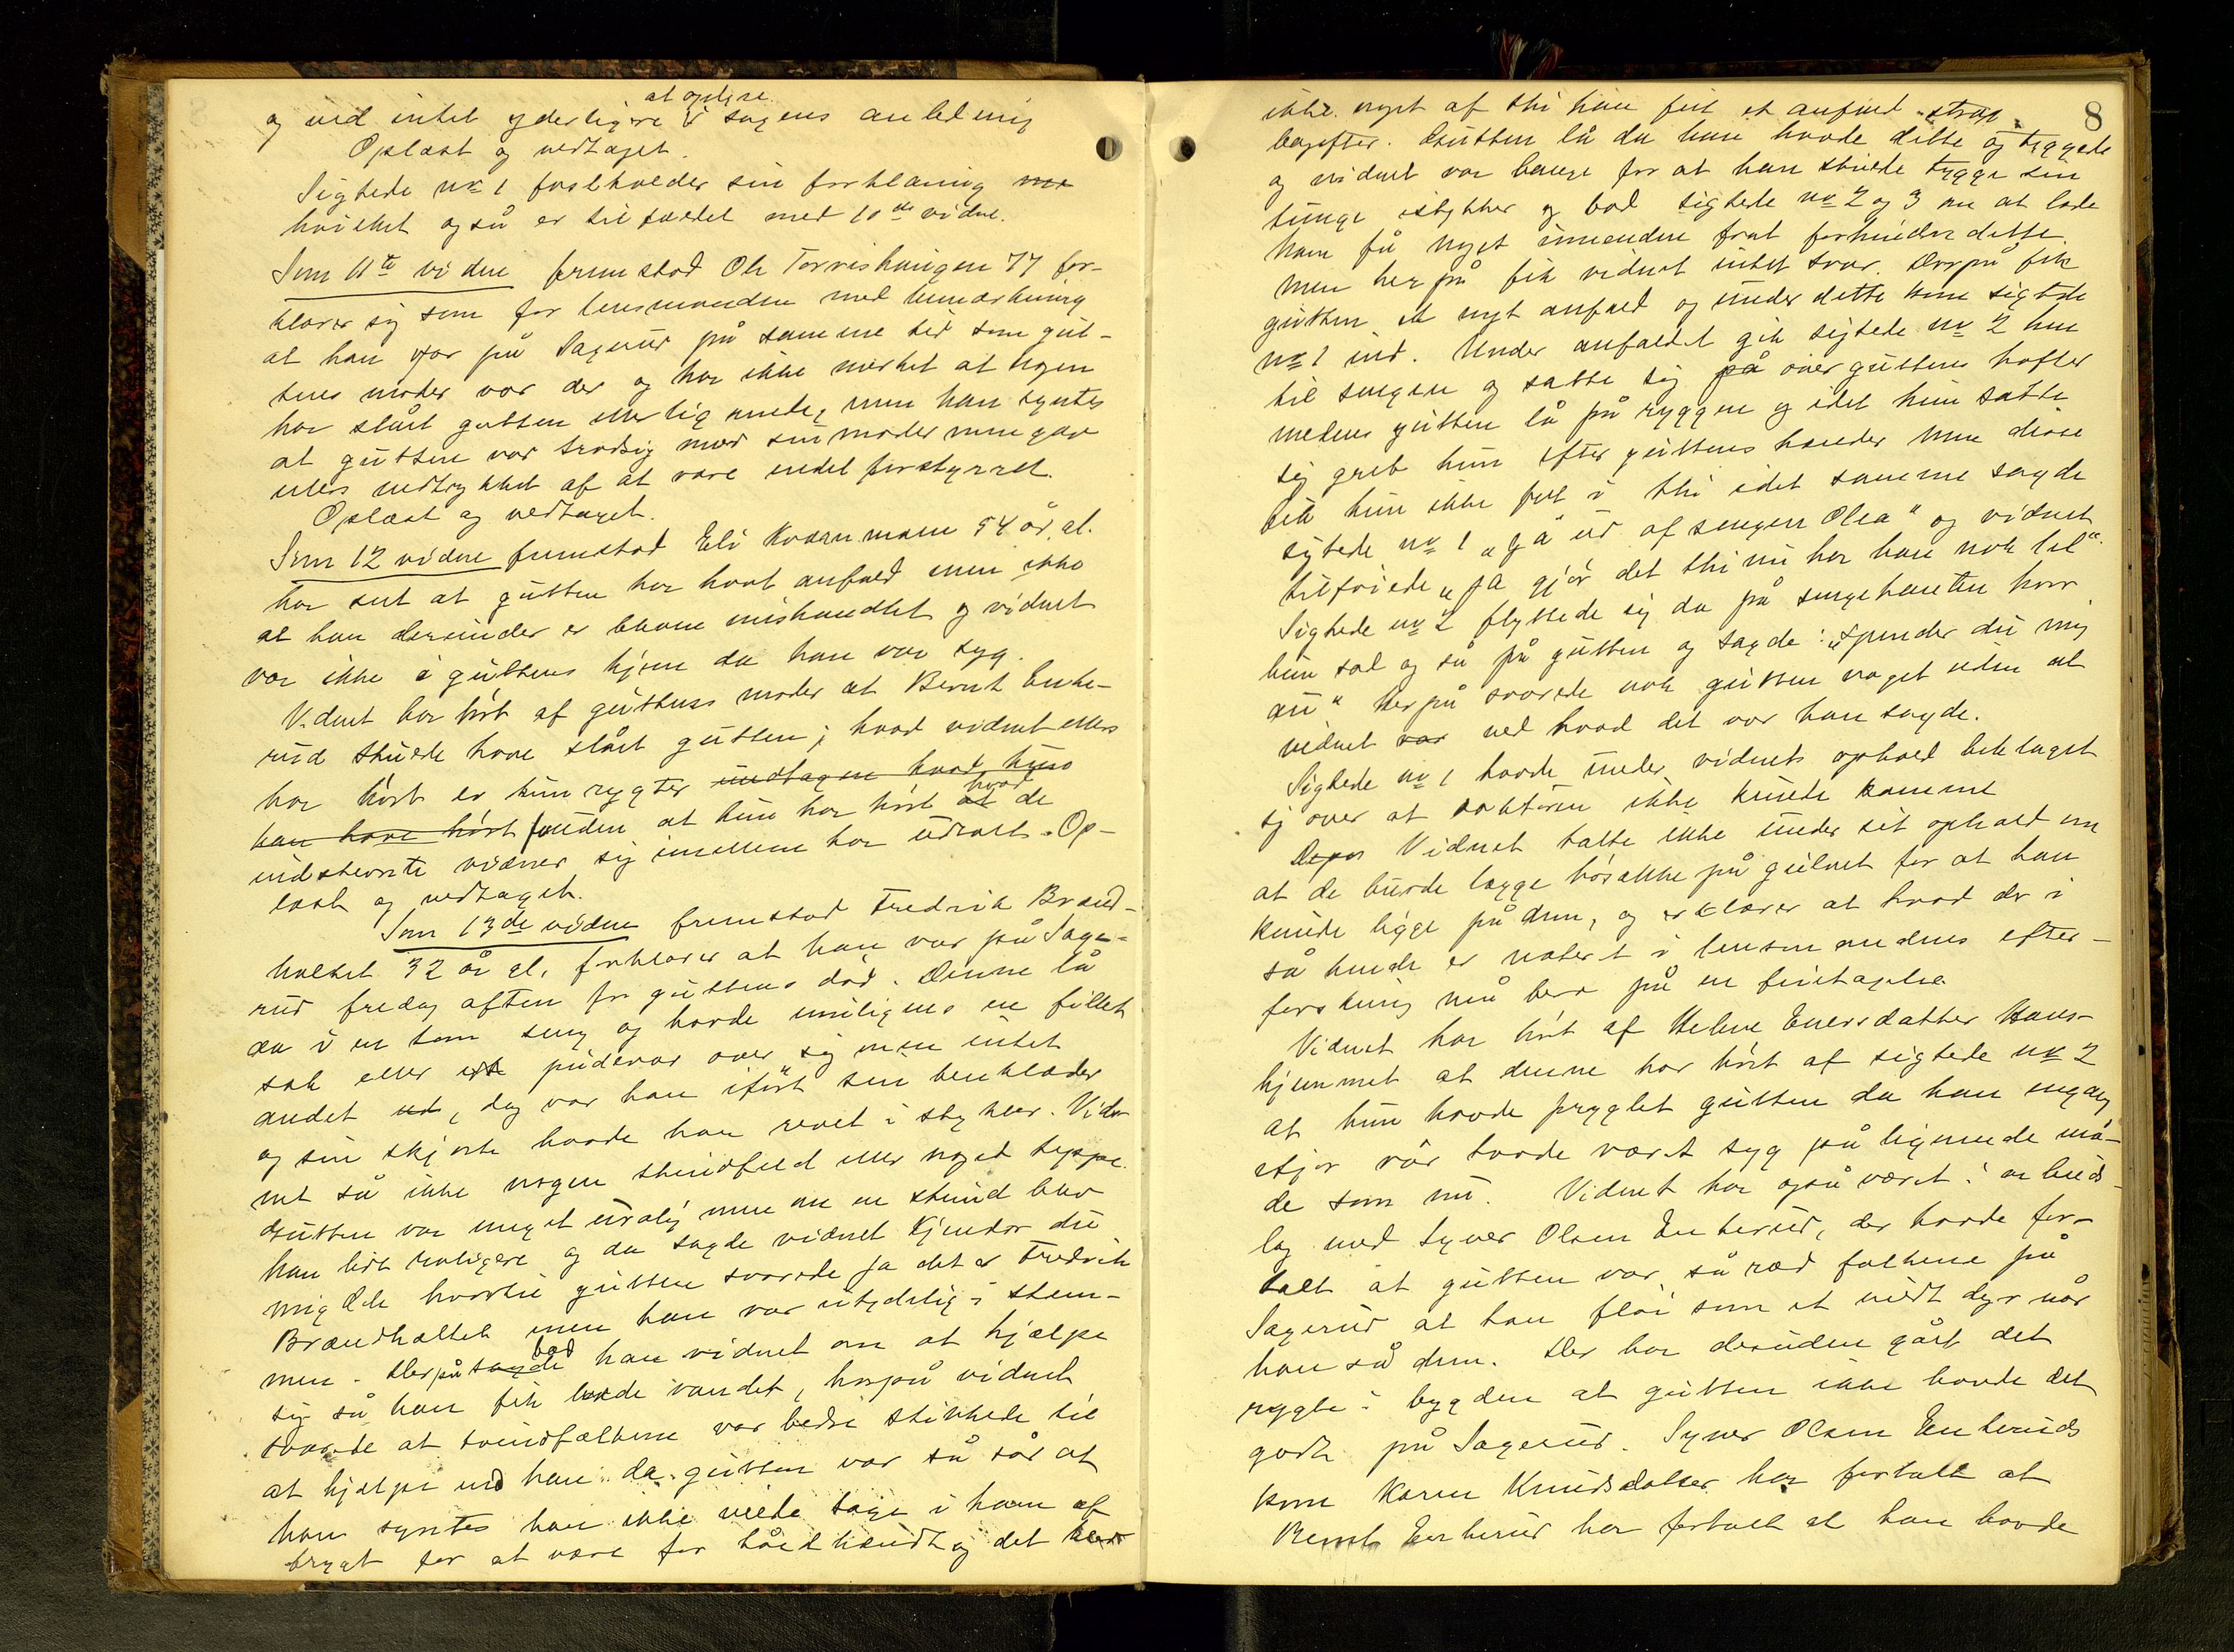 at oplyse
og ved intet yderligere i sagens anledning
Oplæst og vedtaget.
Sigtede no 1 fastholder sin forklaring
hvilket også er tilfældet med 10de vidne.
Som 11te vidne fremstod Ole Torvishaugen 77 for-
klarer sig som for lensmanden med bemærkning
at han var på Sagerud på samme tid som gut-
tens moder var der og har ikke mærket at nogen
har slået gutten eller lignende, men han syntes
at gutten var trodsig mod sin moder men gav
ellers indtrykket af at være endel forstyrret.
Oplæst og vedtaget.
Som 12 vidne fremstod Eli 54 år, al.
har set at gutten har havt anfald men ikke
at han derunder er bleven mishandlet og vidnet
var ikke i guttens hjem da han var syg.
Vidnet har hørt af guttens moder at Bernt Enke-
rud skulde have slået gutten; hvad vidnet ellers
har hørt er kun rygter undtagen hvad hun
kan have hørt foruden at hun har hørt at hvad de
indstevnte vidner sig imellem har udtalt. Op-
læst og vedtaget.
Som 13de vidne fremstod Fredrik Brænd-
holtet 32 år al. forklarer at han var på Sage-
rud fredag aften før guttens død. Denne lå
da i en tom seng og havde muligens en fillet
sæk eller pudevar over sig men intet
andet, dog var han iført sin benklæder
og sin skjorte havde han revet i stykker. Vid-
net så ikke nogen skindfeld eller noget teppe.
Gutten var meget urolig men om en stund blev
han lidt roligere og da sagde vidnet Kjender du
mig Ole hvortil gutten svarede Ja det er Fredrik
Brændholtet men han var utydelig i stem-
men. Derpå sagde bad han vidnet om at hjælpe
sig så han fik lade vandet, hvorpå vidnet
svarede at kvindfolkene var bedre skikkede til
at hjælpe ved han da gutten var så sår at
han syntes han ikke vilde tage i ham af
frygt for at være for hårdhændt og det blev
8
ikke noget af thi han fik et anfald strax
bagefter. Gutten lå da han havde dette og tyggede
og vidnet var bange for at han skulde tygge sin
tunge istykker og bad sigtede no 2 og 3 om at lade
ham få noget i munden for at forhindre dette
men herpå fik vidnet intet svar. Derpå fik
gutten et nyt anfald og under dette kom sigtede
no 1 ind. Under anfaldet gik sigtede no 2 hen
til sengen og satte sig på over guttens hofter
medens gutten lå på ryggen og idet hun satte
sig greb hun efter guttens hænder men disse
fik hun ikke fat i thi idet samme sagde
sigtede no 1 „gå ud af sengen Olea“ og vidnet
tilføiede „ja gjør det thi nu har han nok til“.
Sigtede no 2 flyttede sig da på sengekanten hvor
hun sad og så på gutten og sagde: „spender du mig
nu“ herpå svarede nok gutten noget uden at
vidnet var ved hvad det var han sagde.
Sigtede no 1 havde under vidnets ophold beklaget
sig over at doktoren ikke kunde komme
Vidnet talte ikke under sit ophold om
at de burde lægge høsække på gulvet for at han
kunde ligge på dem, og erklærer at hvad der i
så hende er noteret i lensmandens efter-
forskning må bero på en feiltagelse
Vidnet har hørt af Helene Enersdatter Haus-
hjemmet at denne har hørt af sigtede no 2
at hun havde pryglet gutten da han engang
ifjor vår havde været syg på lignende må-
de som nu. Vidnet har også været i arbeids-
lag med Syver Olsen Enkerud, der havde for-
talt at gutten var så ræd folkene på
Sagerud at han fløi som et vildt dyr når
han så dem. Der har desuden gået det
rygte i bygden at gutten ikke havde det
godt på Sagerud. Syver Olsen Enkeruds
kone Karen Knudsdatter har fortalt at
Bernt Enkerud har fortalt at han havde